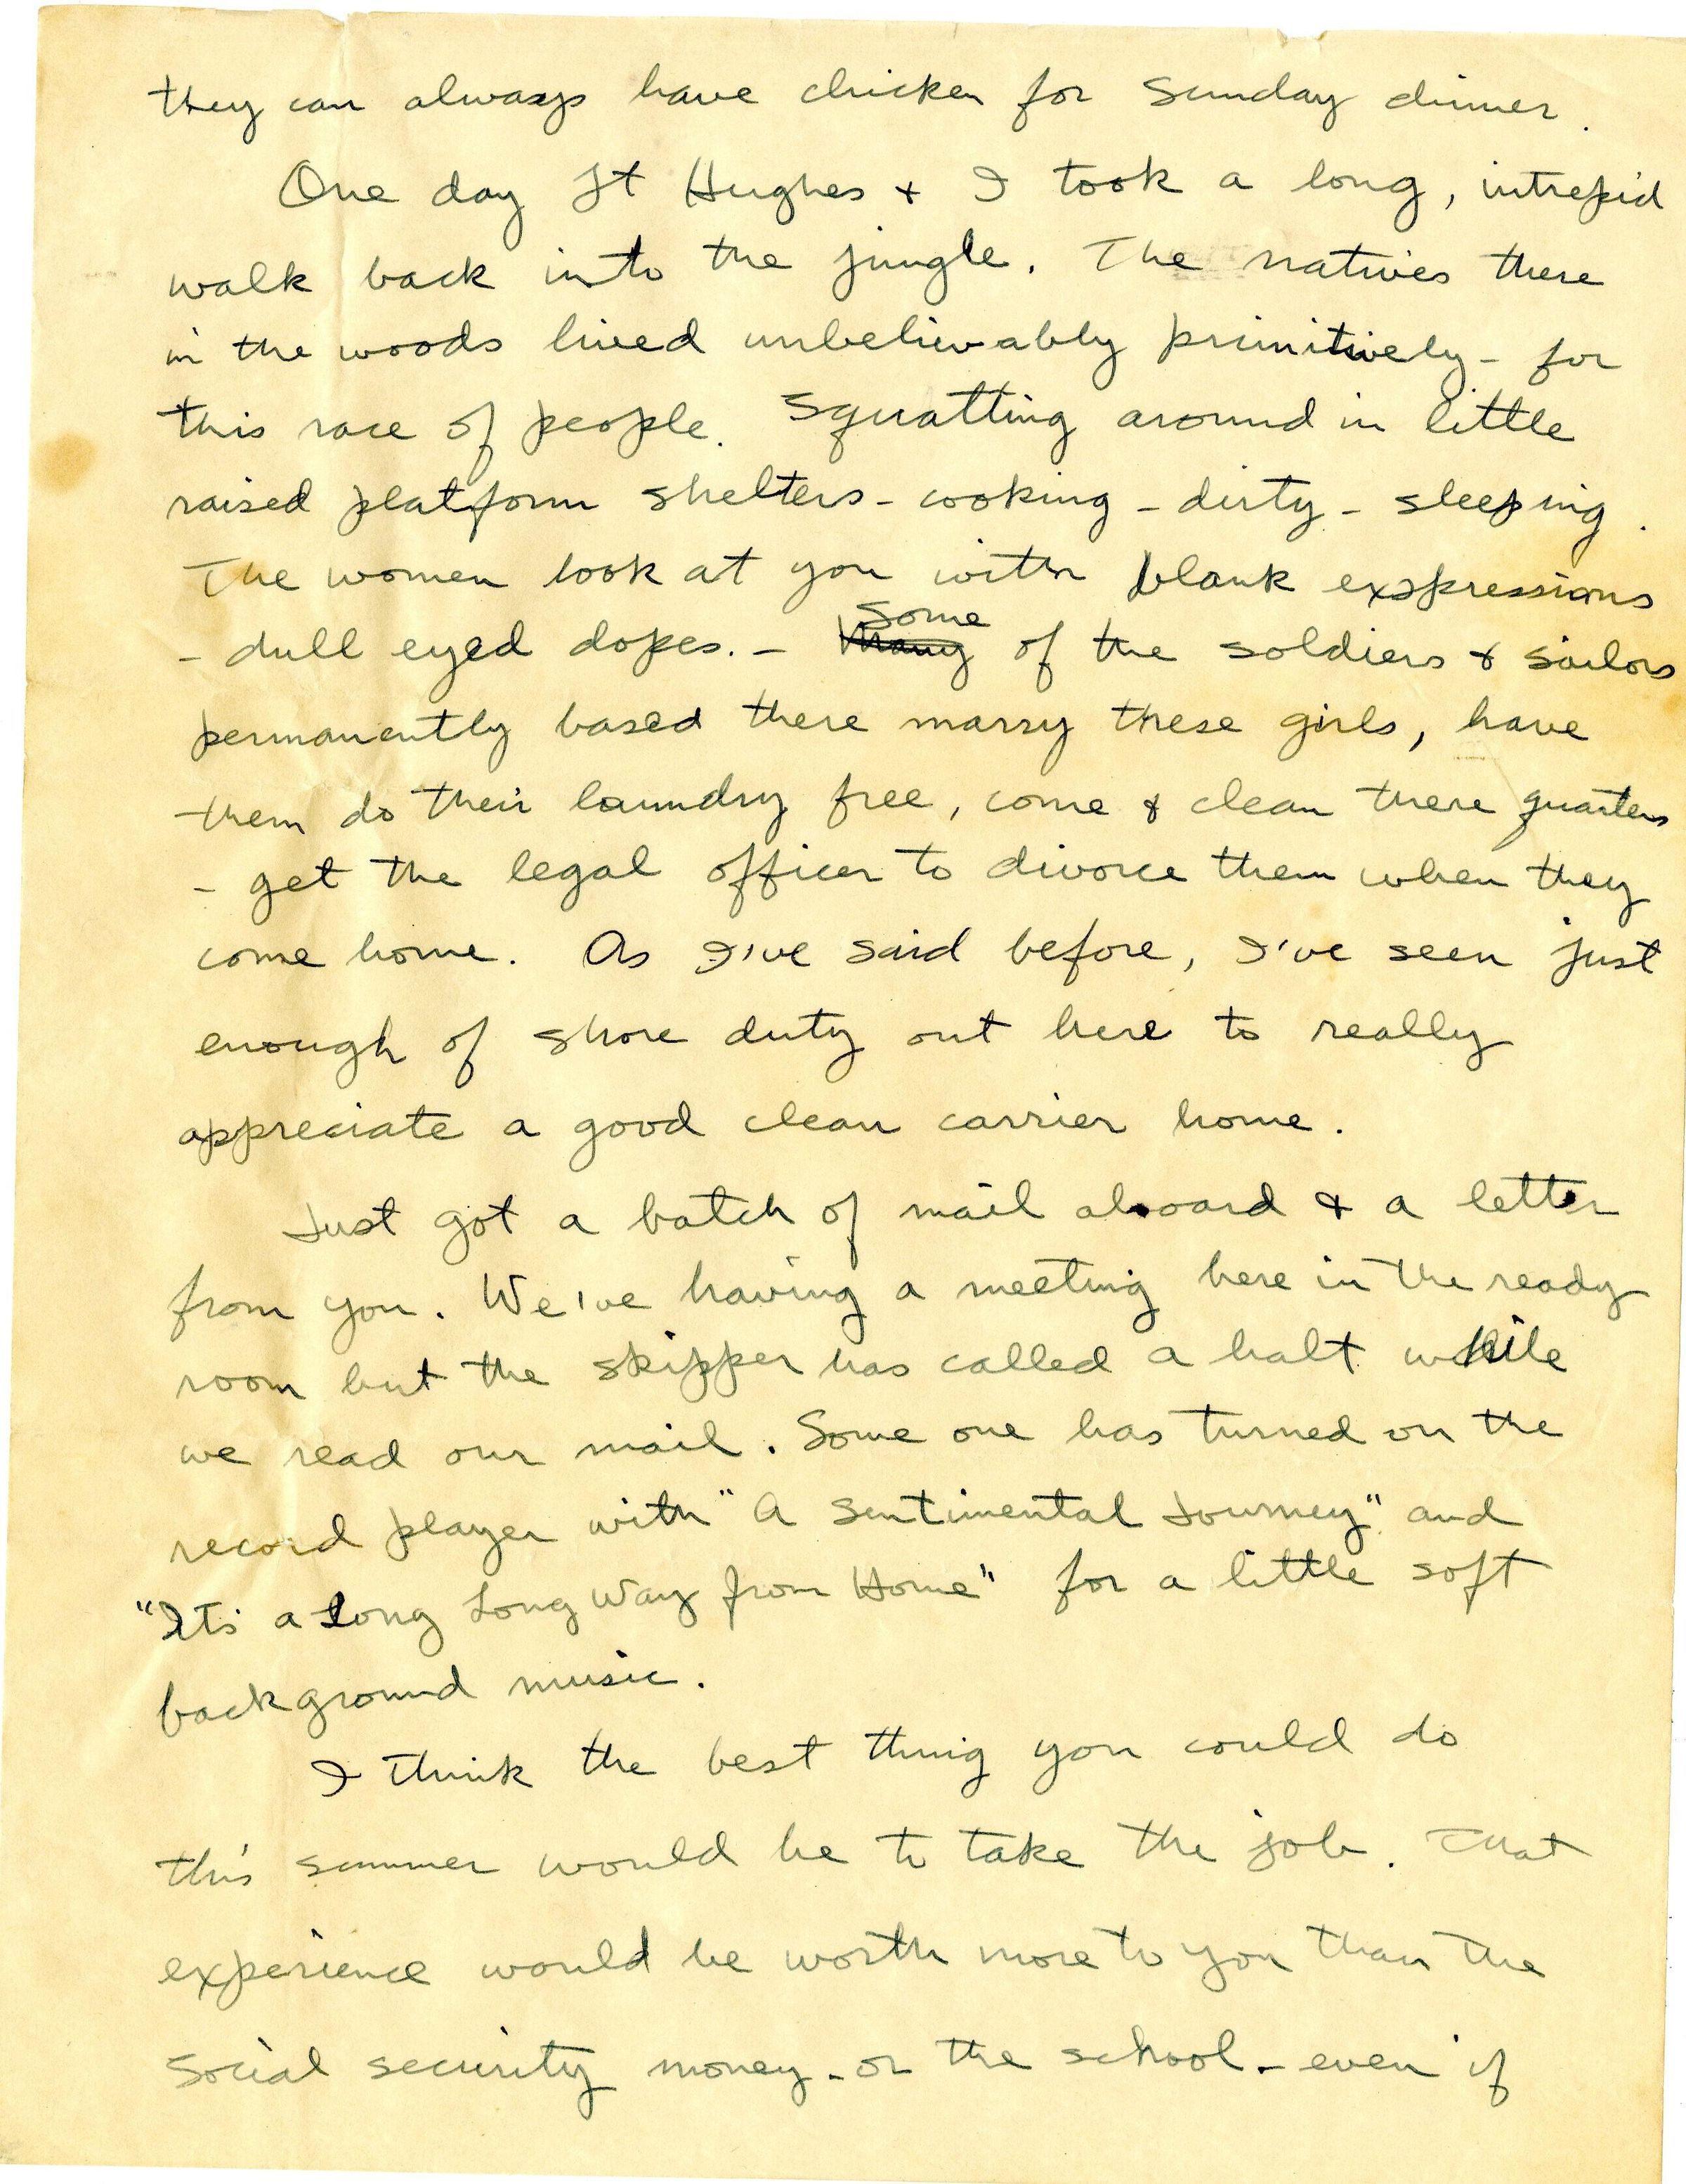 they can always have chicken for Sunday dinner.
One day Lt Hughes + I took a long, intrepid
walk back into the jungle. The natives there
in the woods lived unbelievably primitively - for
this race of people. Squatting around in little
raised platform shelters - cooking - dirty - sleeping.
The women look at you with blank expressions
- dull eyed dopes. - Many Some of the soldiers & sailors
permanently based there marry these girls, have
them do their laundry free, come & clean there quarters
- get the legal officer to divorce them when they
come home. As I've said before, I've seen just
enough of shore duty out here to really
appreciate a good clean carrier home.
Just got a batch of mail aboard & a letter
from you. We've having a meeting here in the ready
room but the skipper has called a halt while
we read our mail. Some one has turned on the
record player with "A Sentimental Journey" and
"Its a Long Long Way from Home" for a little soft
background music.
I think the best thing you could do
this summer would be to take the job. That
experience would be worth more to you than the
social security money - or the school - even if